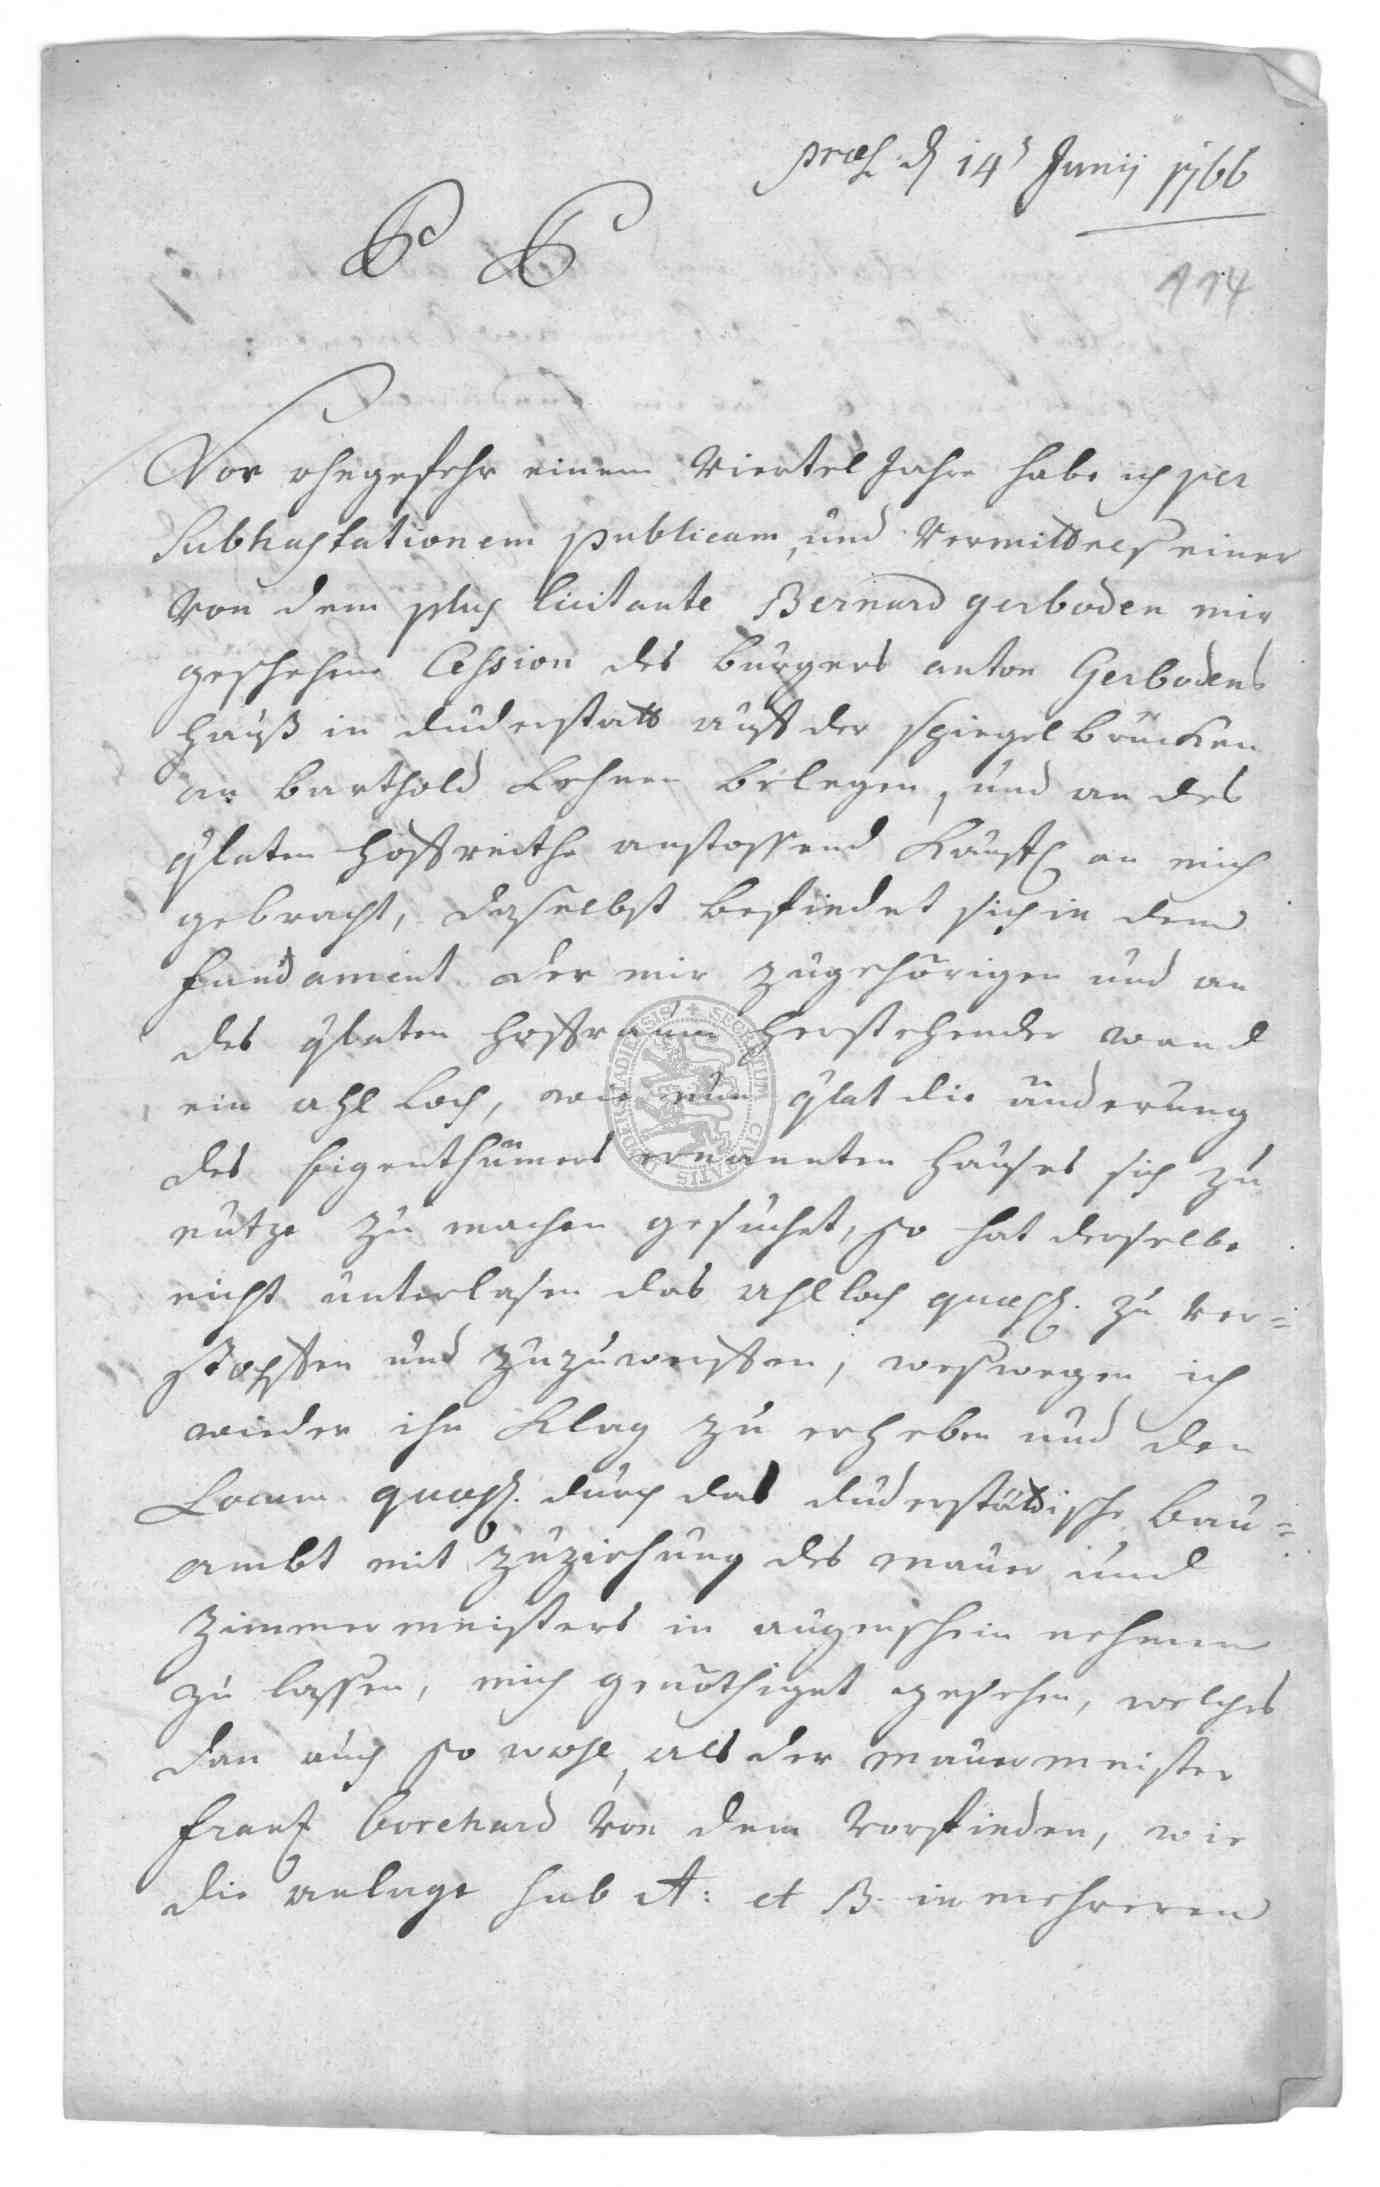 præs. d 14t Junij 1766
P P
114
Vor ohngefehr einem Viertel Jahre habe ich per
Subhastationem publicam, und Vermittelß einer
Von dem plus licitante Bernard gerboden mir
geschehene Cession des burgers anton Gerbodens
hauß in duderstatt auff der spiegel brücken
an barthold Lehnen belegen, und an des
glaten hoffreithe anstossend käufl. an mich
gebracht, daselbst befindet sich in dem
fundament der mir zugehörigen und an
des glaten hoffraum herstehender wand
ein ahl loch, wie nun glat die änderung
des Eigenthümers ernannten hauses sich zu
nutze zu machen gesuchet, so hat derselbe
nicht unterlasen das ahlloch quæst. zu ver=
stopffen und zuzuwerffen, weßwegen ich
wieder ihn Klag zu erheben und den
Locum quæst. durch das duderstättische bau=
ambt mit zuziehung des maur und
zimmermeisters in augenschein nehmen
zu lassen, mich genöthiget gesehen, welches
dan auch so wohl, als der maurmeister
frantz borchard Von dem Vorfinden, wie
die anlage sub A: et B. in mehreren
SECRETUM CIVITATIS